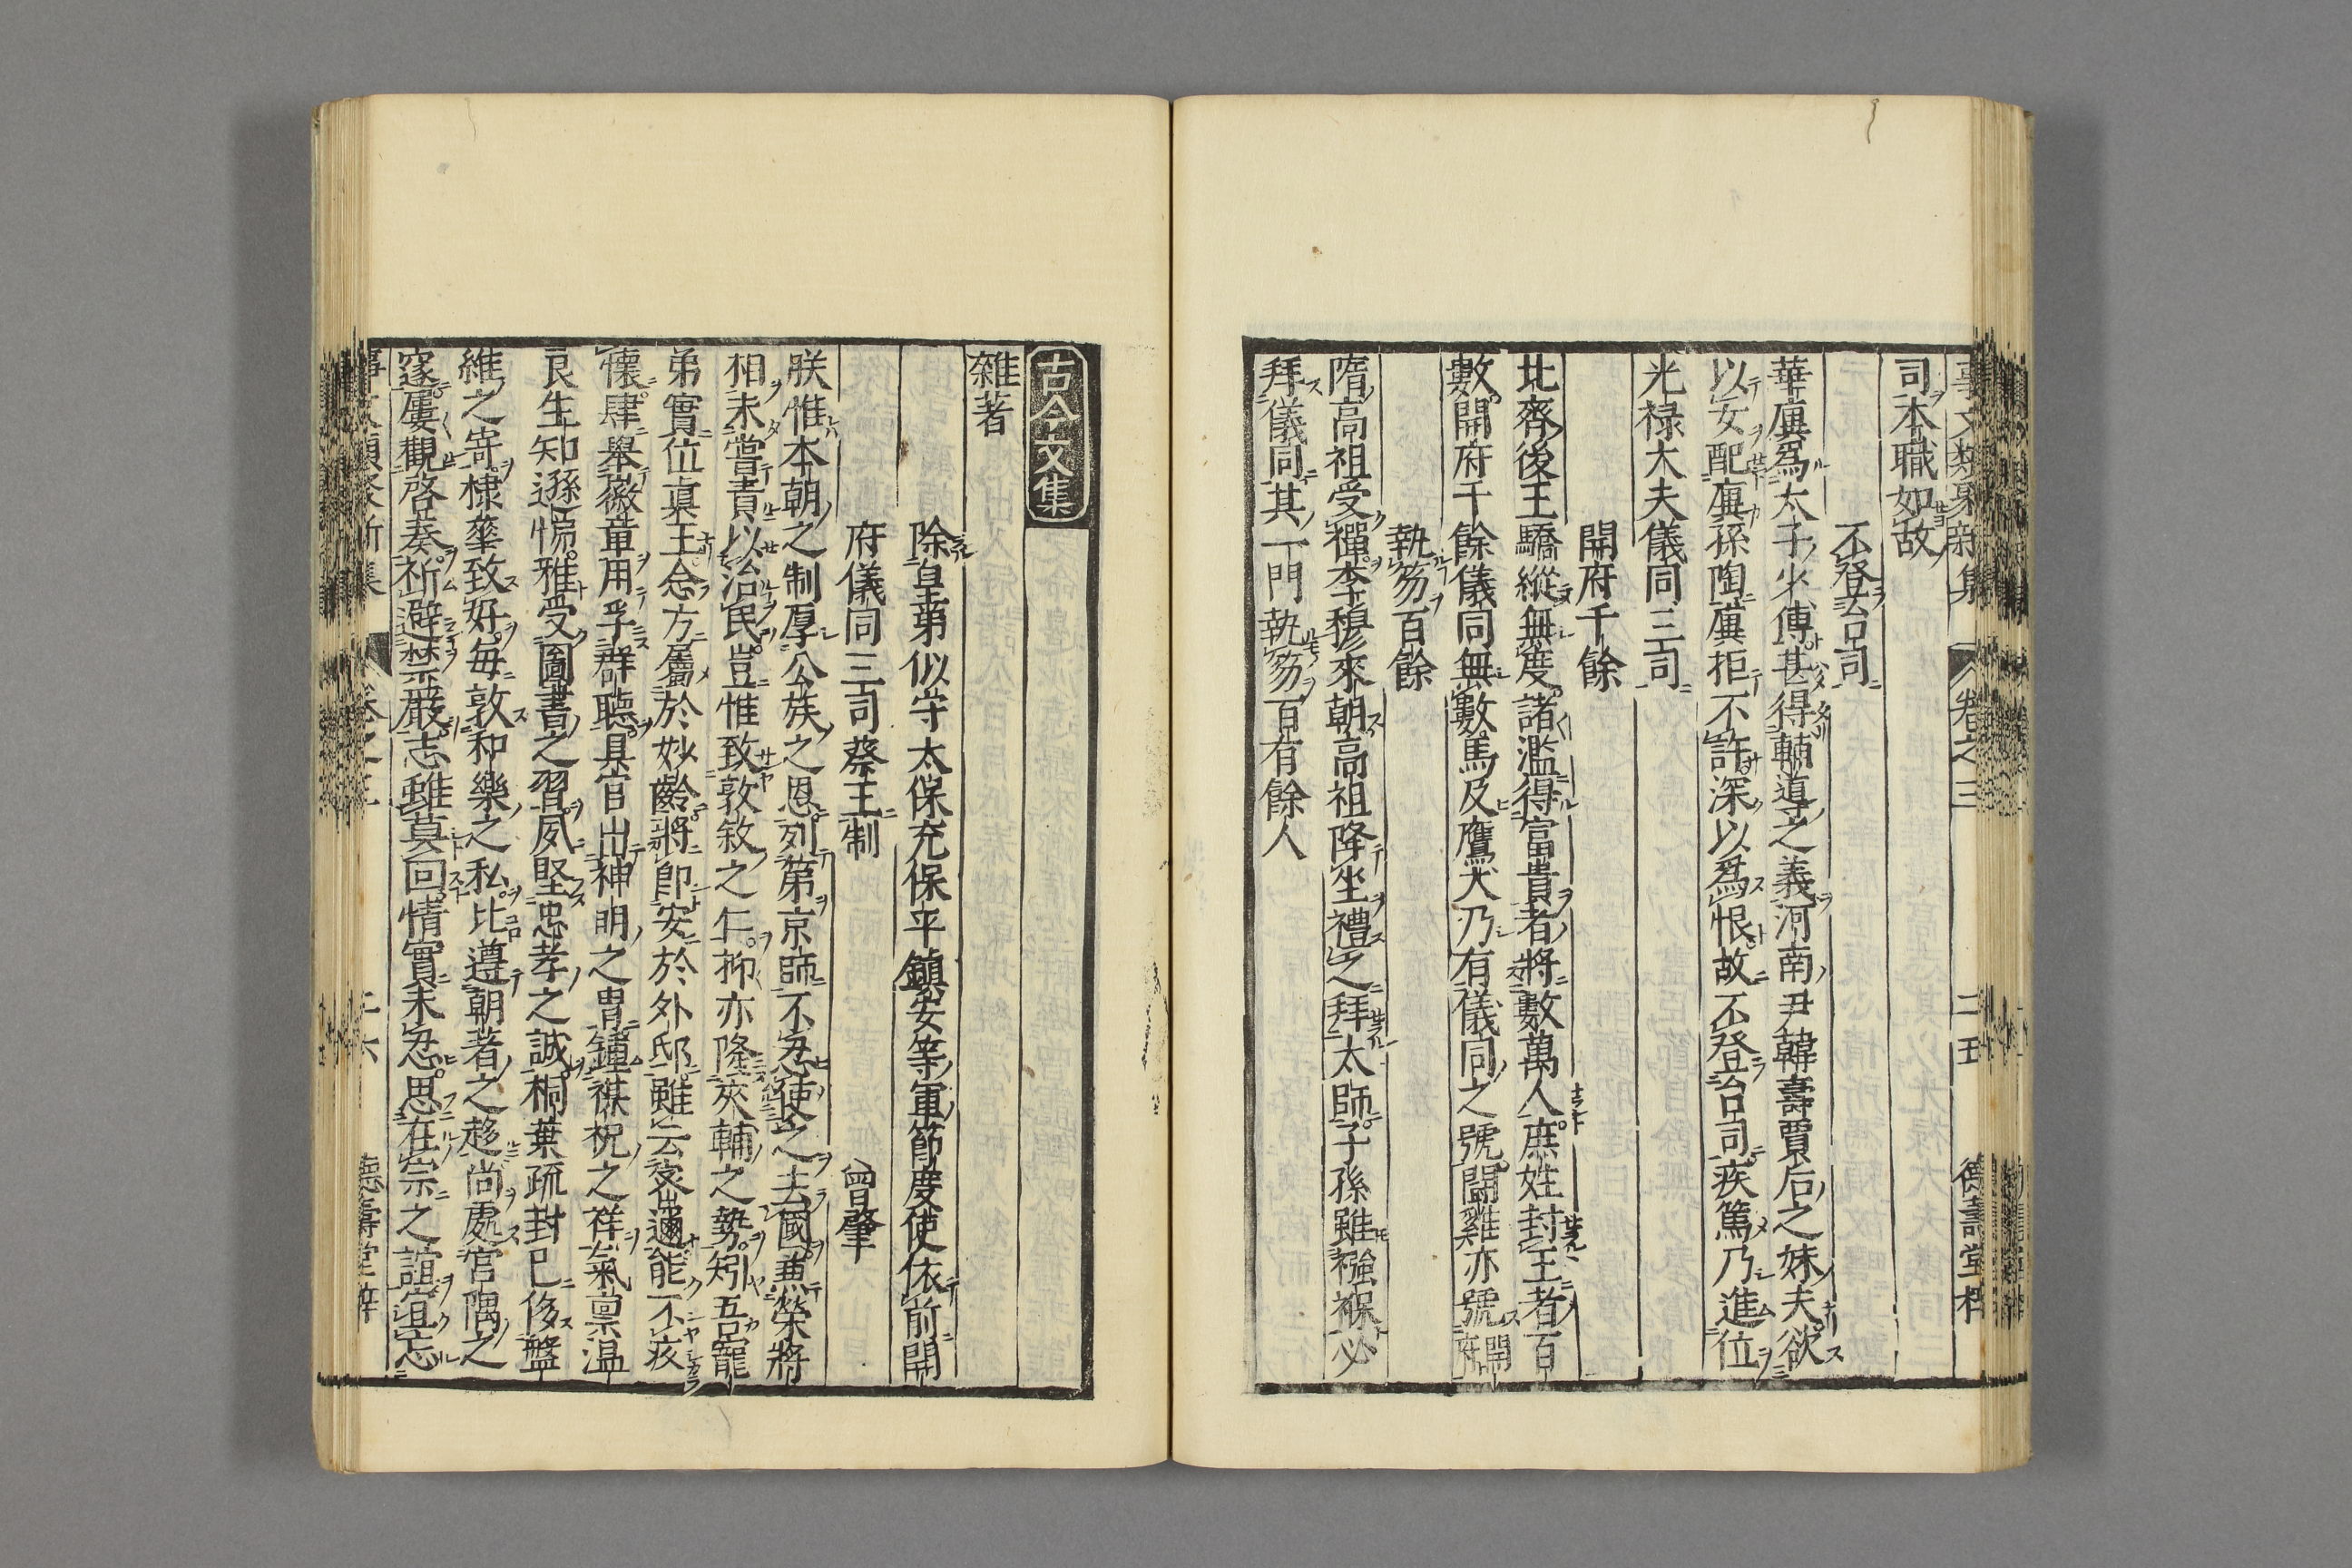 事文類聚新集　卷之三　二五　德壽堂梓
司本職如故
不登台司
華廙爲太子少傅甚得輔導之義河南尹韓壽賈后之妹夫欲
以女配廙孫陶廙拒不許深以爲恨故不登台司疾篤乃進位
光禄大夫儀同三司
開府千餘
北齊後王驕縱無度諸濫得富貴者將數萬人庶姓封王者百
數開府千餘儀同無數馬及鷹犬乃有儀同之號闘雞亦號開府
執笏百餘
隋高祖受禪李穆來朝高祖降坐禮之拜太師子孫雖襁褓必
拜儀同其一門執笏百有餘人
古今文集
雜著
除皇弟似守太保充保平鎮安等軍節度使依前開
府儀同三司蔡王制　曾肇
朕惟本朝之制厚公族之恩列第京師不忍使之去國兼榮將
相未嘗責以治民豈惟致敦敘之仁抑亦隆夾輔之勢矧吾寵
弟實位眞王念方屬於妙齡將卽安於外邸雖云衮邇能不疚
懷肆舉徽章用孚群聽具官出神明之胄鍾禖祝之祥氣禀温
良生知遜悌雅受圖書之習夙堅忠孝之誠桐葉疏封已侈盤
維之寄棣華致好毎敦和樂之私比遵朝著之趍尚處官隅之
邃屢觀啓奏祈避禁嚴志雖莫回情實未忍思在宗之誼宜忘